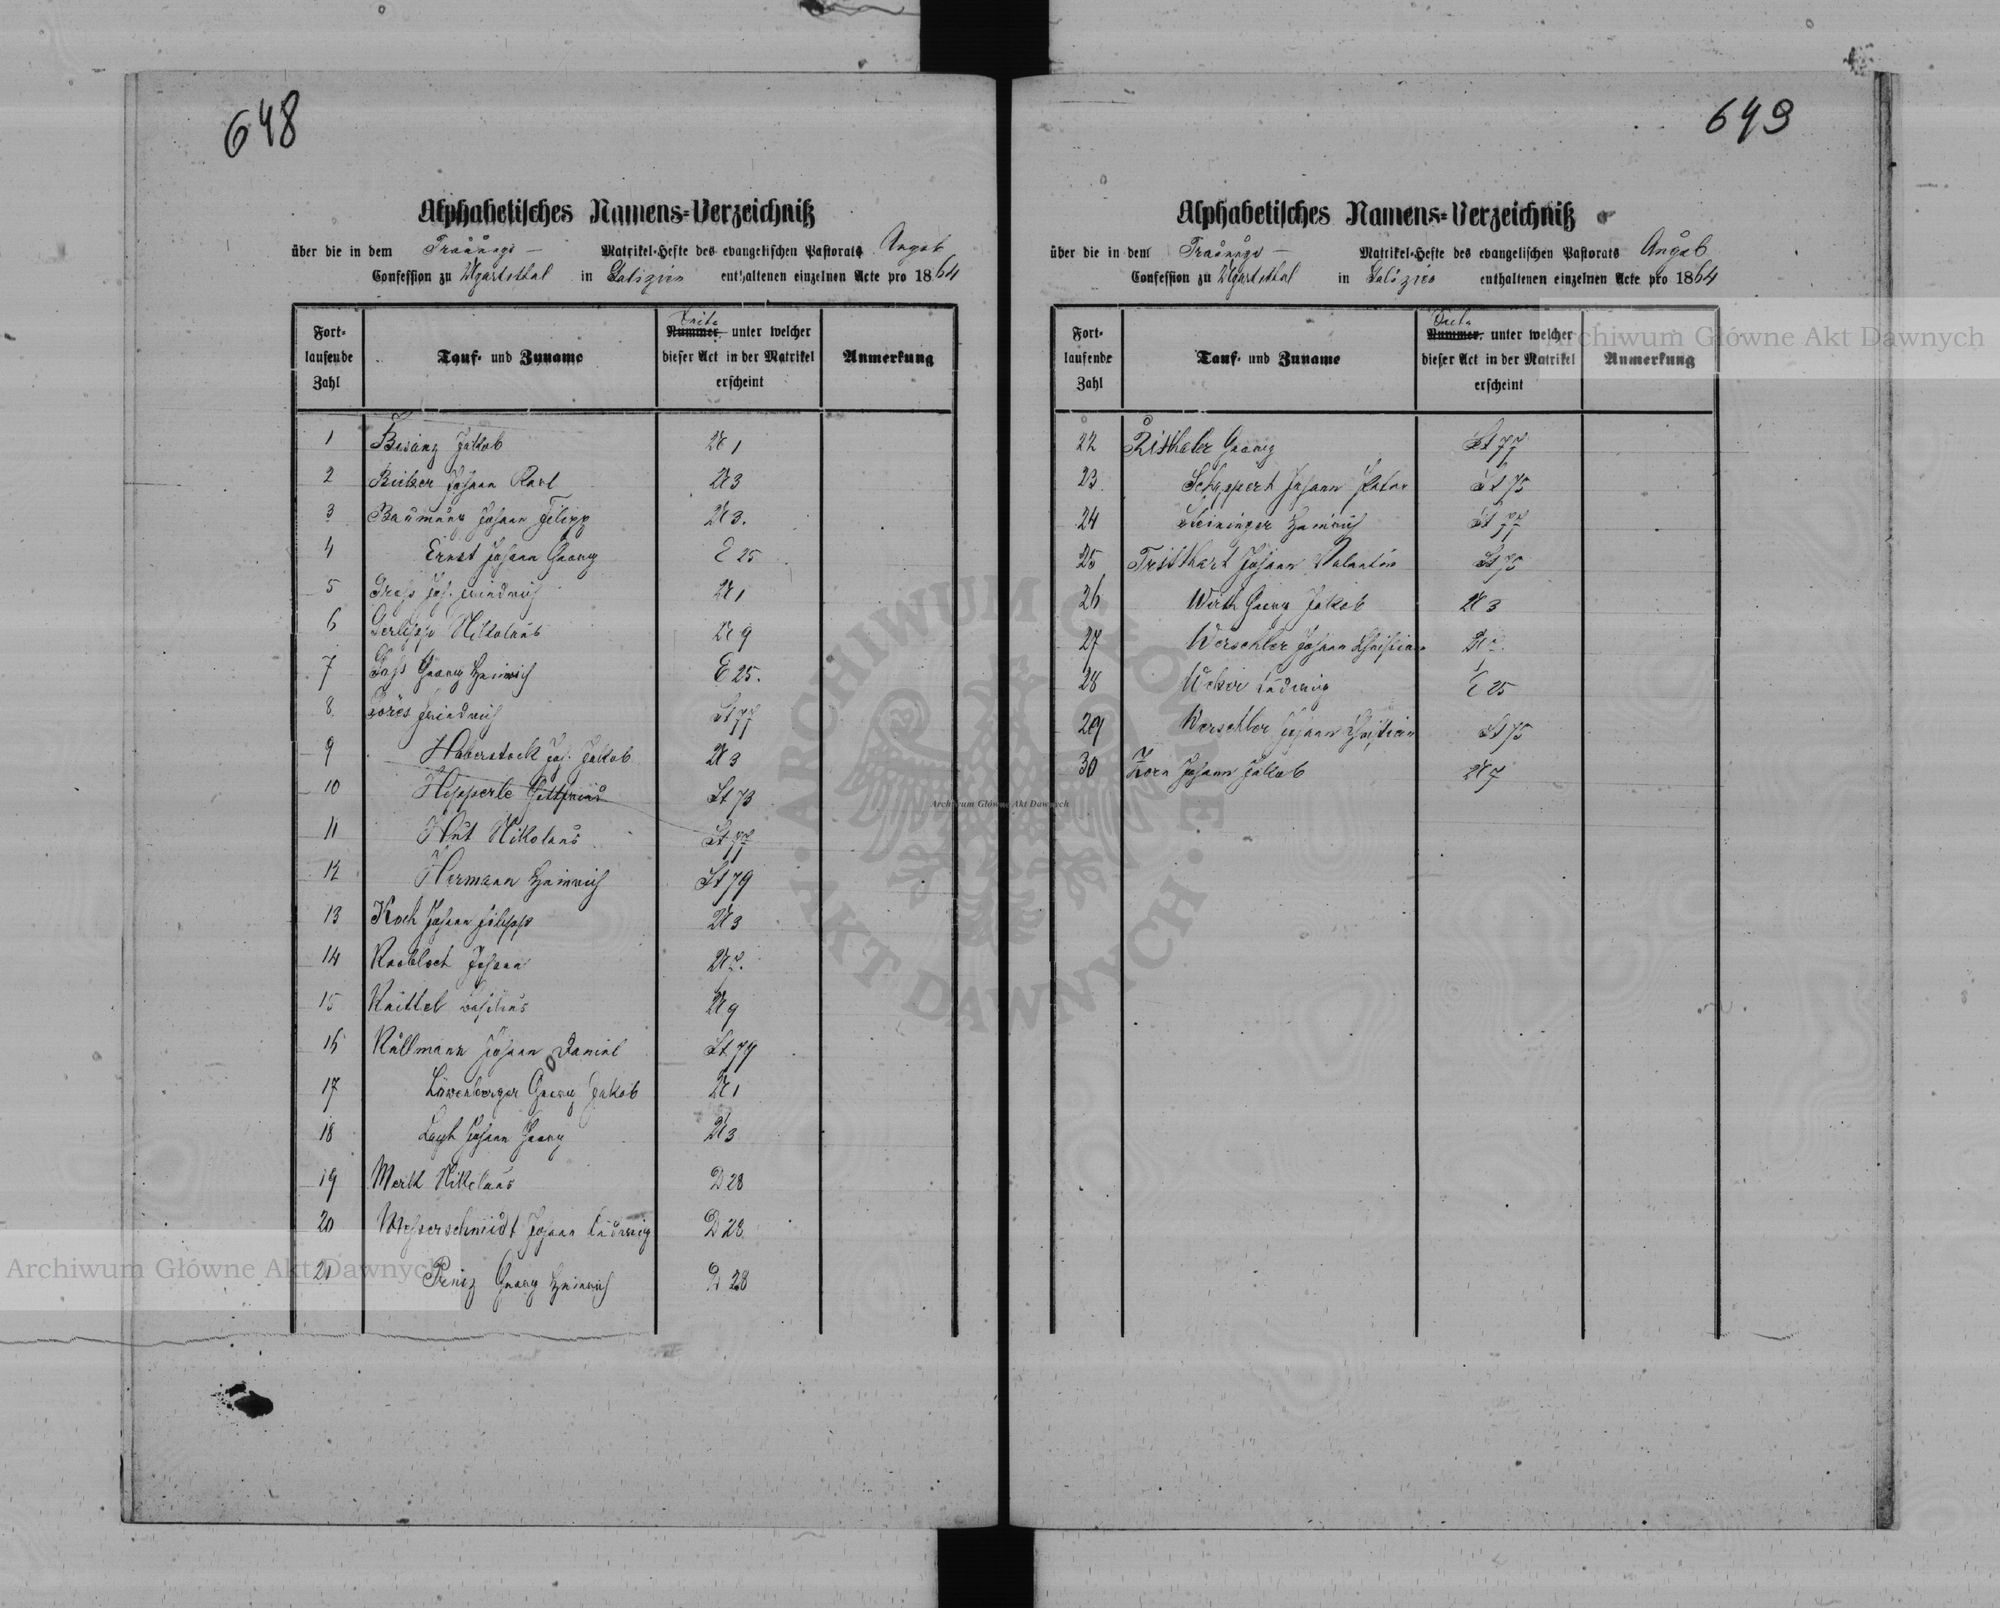 648
Alphabetisches Namens-Verzeichniß
über die in dem Trauungs- Matrikel-Hefte des evangelischen Pastorats Augsb.
Confession zu Ugartsthal in Galizien enthaltenen einzelnen Acte pro 1864
Fort-
laufende
Zahl
Tauf- und Zuname
Seite
Nummer, unter welcher
dieser Act in der Matrikel
erscheint
Anmerkung
1 Bisanz Jakob U 1
2 Bieber Johann Karl U 3
3 Baumung Johann Filipp U 3.
4 Ernst Johann Georg E 25
5 Gress Joh. Friedrich U 1
6 Gerlipp Nikolaus U 9
7 Georg Heinrich E 25.
8 Göres Friedrich St 77
9 Haberstock Joh. Jakob U 3
10 Hipperle Gottfried St 73
11 Hut Nikolaus St 77
12 Hermann Heinrich St 79
13 Koch Johann Filipp U 3
14 Knobloch Johann U 7.
15 Knittel U 9
16 Kullmann Johann Daniel St 79
17 Löwenberger Georg Jakob U 1
18 Johann Georg U 3
19 Merth Nikolaus D 28
20 Messerschmidt Johann Ludwig D 28
21 Prinz Georg Heinrich D 28
649
Alphabetisches Namens-Verzeichniß
über die in dem Trauungs- Matrikel-Hefte des evangelischen Pastorats Augsb.
Confession zu Ugartsthal in Galizien enthaltenen einzelnen Acte pro 1864
Fort-
laufende
Zahl
Tauf- und Zuname
Seite
Nummer, unter welcher
dieser Act in der Matrikel
erscheint
Anmerkung
22 Risthaler Georg St 77
23. Johann Peter St 75
24 Steininger Heinrich St 77
25 Tristhart Johann Valentin St 75
26 Wirth Georg Jakob U 3
27 Werschler Johann Christian U
28 Weber Ludwig E 25
29 Werschler Johann Christian St 75
30 Zorn Johann Jakob U 7
Archiwum Główne Akt Dawnych
Archiwum Główne Akt Dawnych
Archiwum Główne Akt Dawnych
ARCHIWUM GŁÓWNE
AKT DAWNYCH